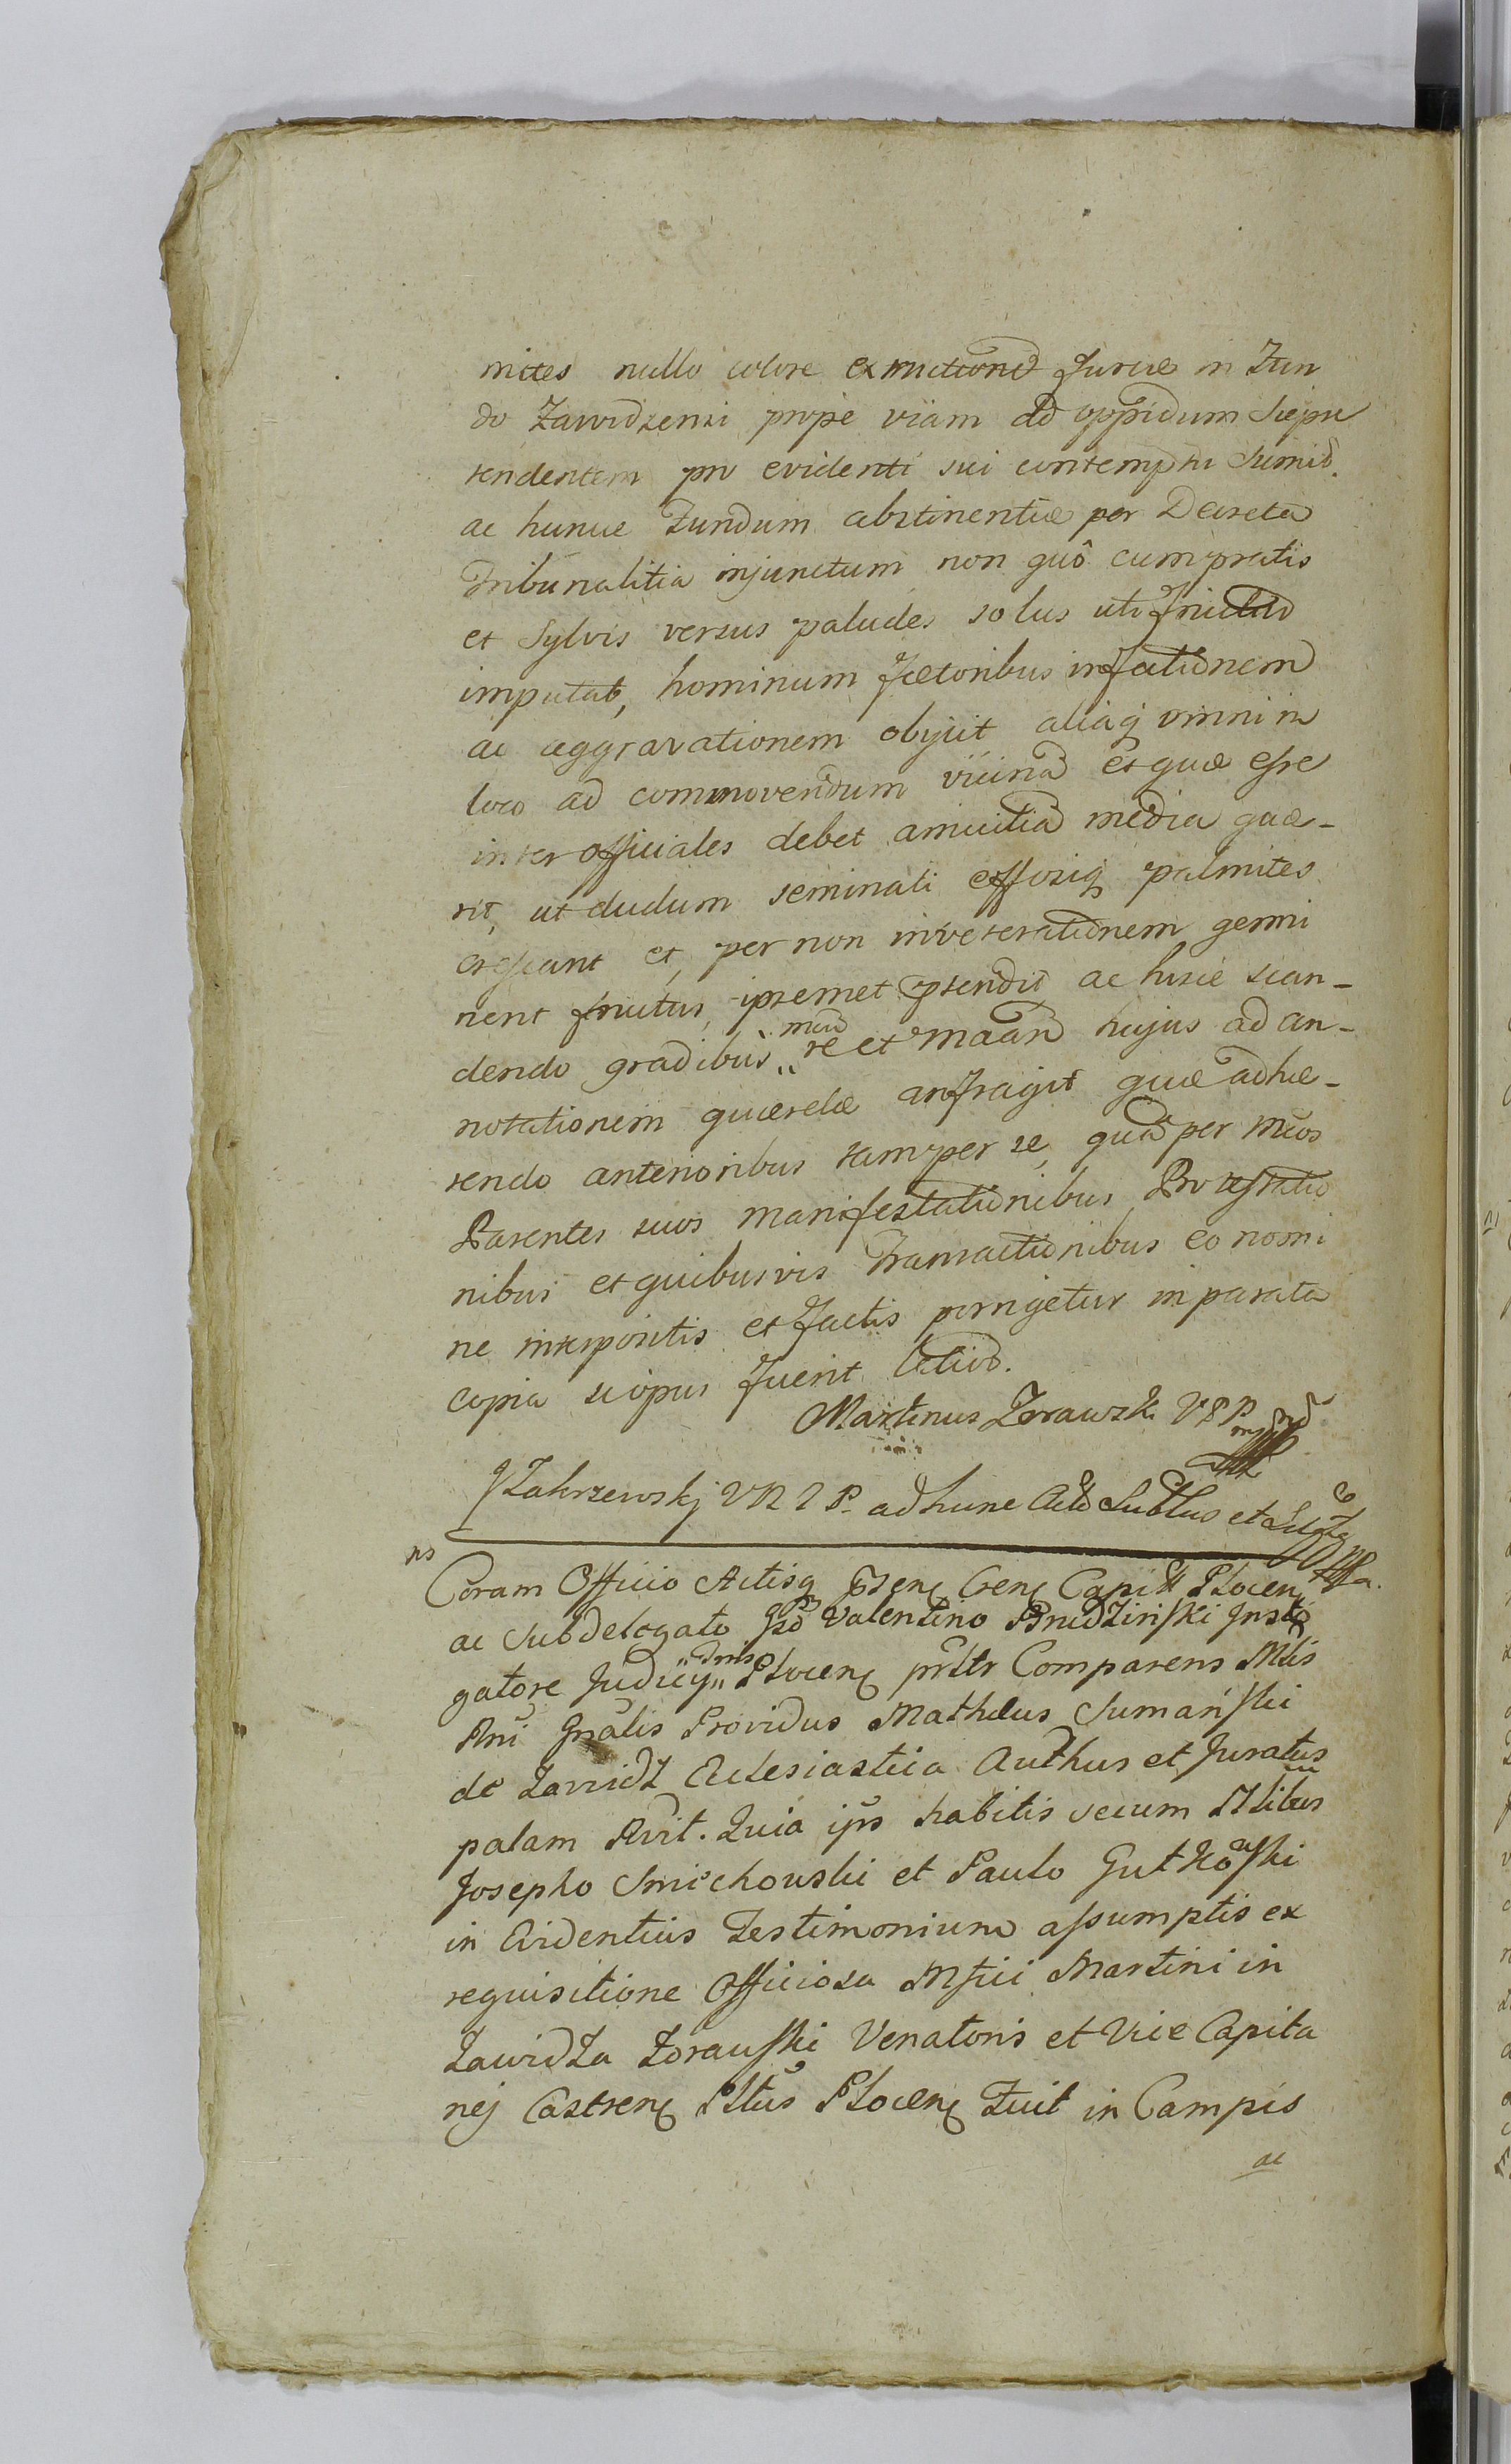 mites nullo colore exructione furcæ in Fun
do Zawidzensi prope viam ad oppidum Siepre
tendentem pro evidenti sui contemptu
ac hunce Fundum abstinentiæ per Decreta
Tribunalitia injunctum non quô cum pratis
et Sylvis versus paludes solus uti
imputat, hominum
ac aggravationem objicit aliaq omni in
loco ad commovendum vicina et quæ esse
inter officiales debet amicitia media quæ-
rit, ut dudum seminati effosiq palmites
crescant et per non inveterationem germi
nent fructus, ipsemet ptendit ac hisce scan-
dendo gradibus re et hujus ad an-
notationem querelæ anfragit quæ adhæ-
rendo anterioribus tam per se, qua per Mcos
Parentes suos manifestationibus Protestatio
nibus et quibusvis Transactionibus eo nomi
ne interpositis et factis porrigetur in parata
copia si opus fuerit
Martinus Zorawski V S P
J Zakrzewskj V R I P ad hunc Actu
ns
Coram Officio Actisq psenς Crenς Capitt Plocenς
ac Subdelegato Gso Valentino Brudzinski Insti
gatore Judicij Plocenς psltr Comparens Mlis
Rni Gnalis Providus Mathæus Sumański
de Zawidz Eclesiastica Authus et Juratus
palam Rvit. Quia ips habitis secum Nlibus
Josepho Smichowski et Paulo Gutkowski
in Evidentius Testimonium assumptis ex
requisitione Officiosa Mfici Martini in
Zawidza Zorauski Venatoris et Vice Capita
nej Castrenς Pltus Plocenς Fuit in Campis
ac